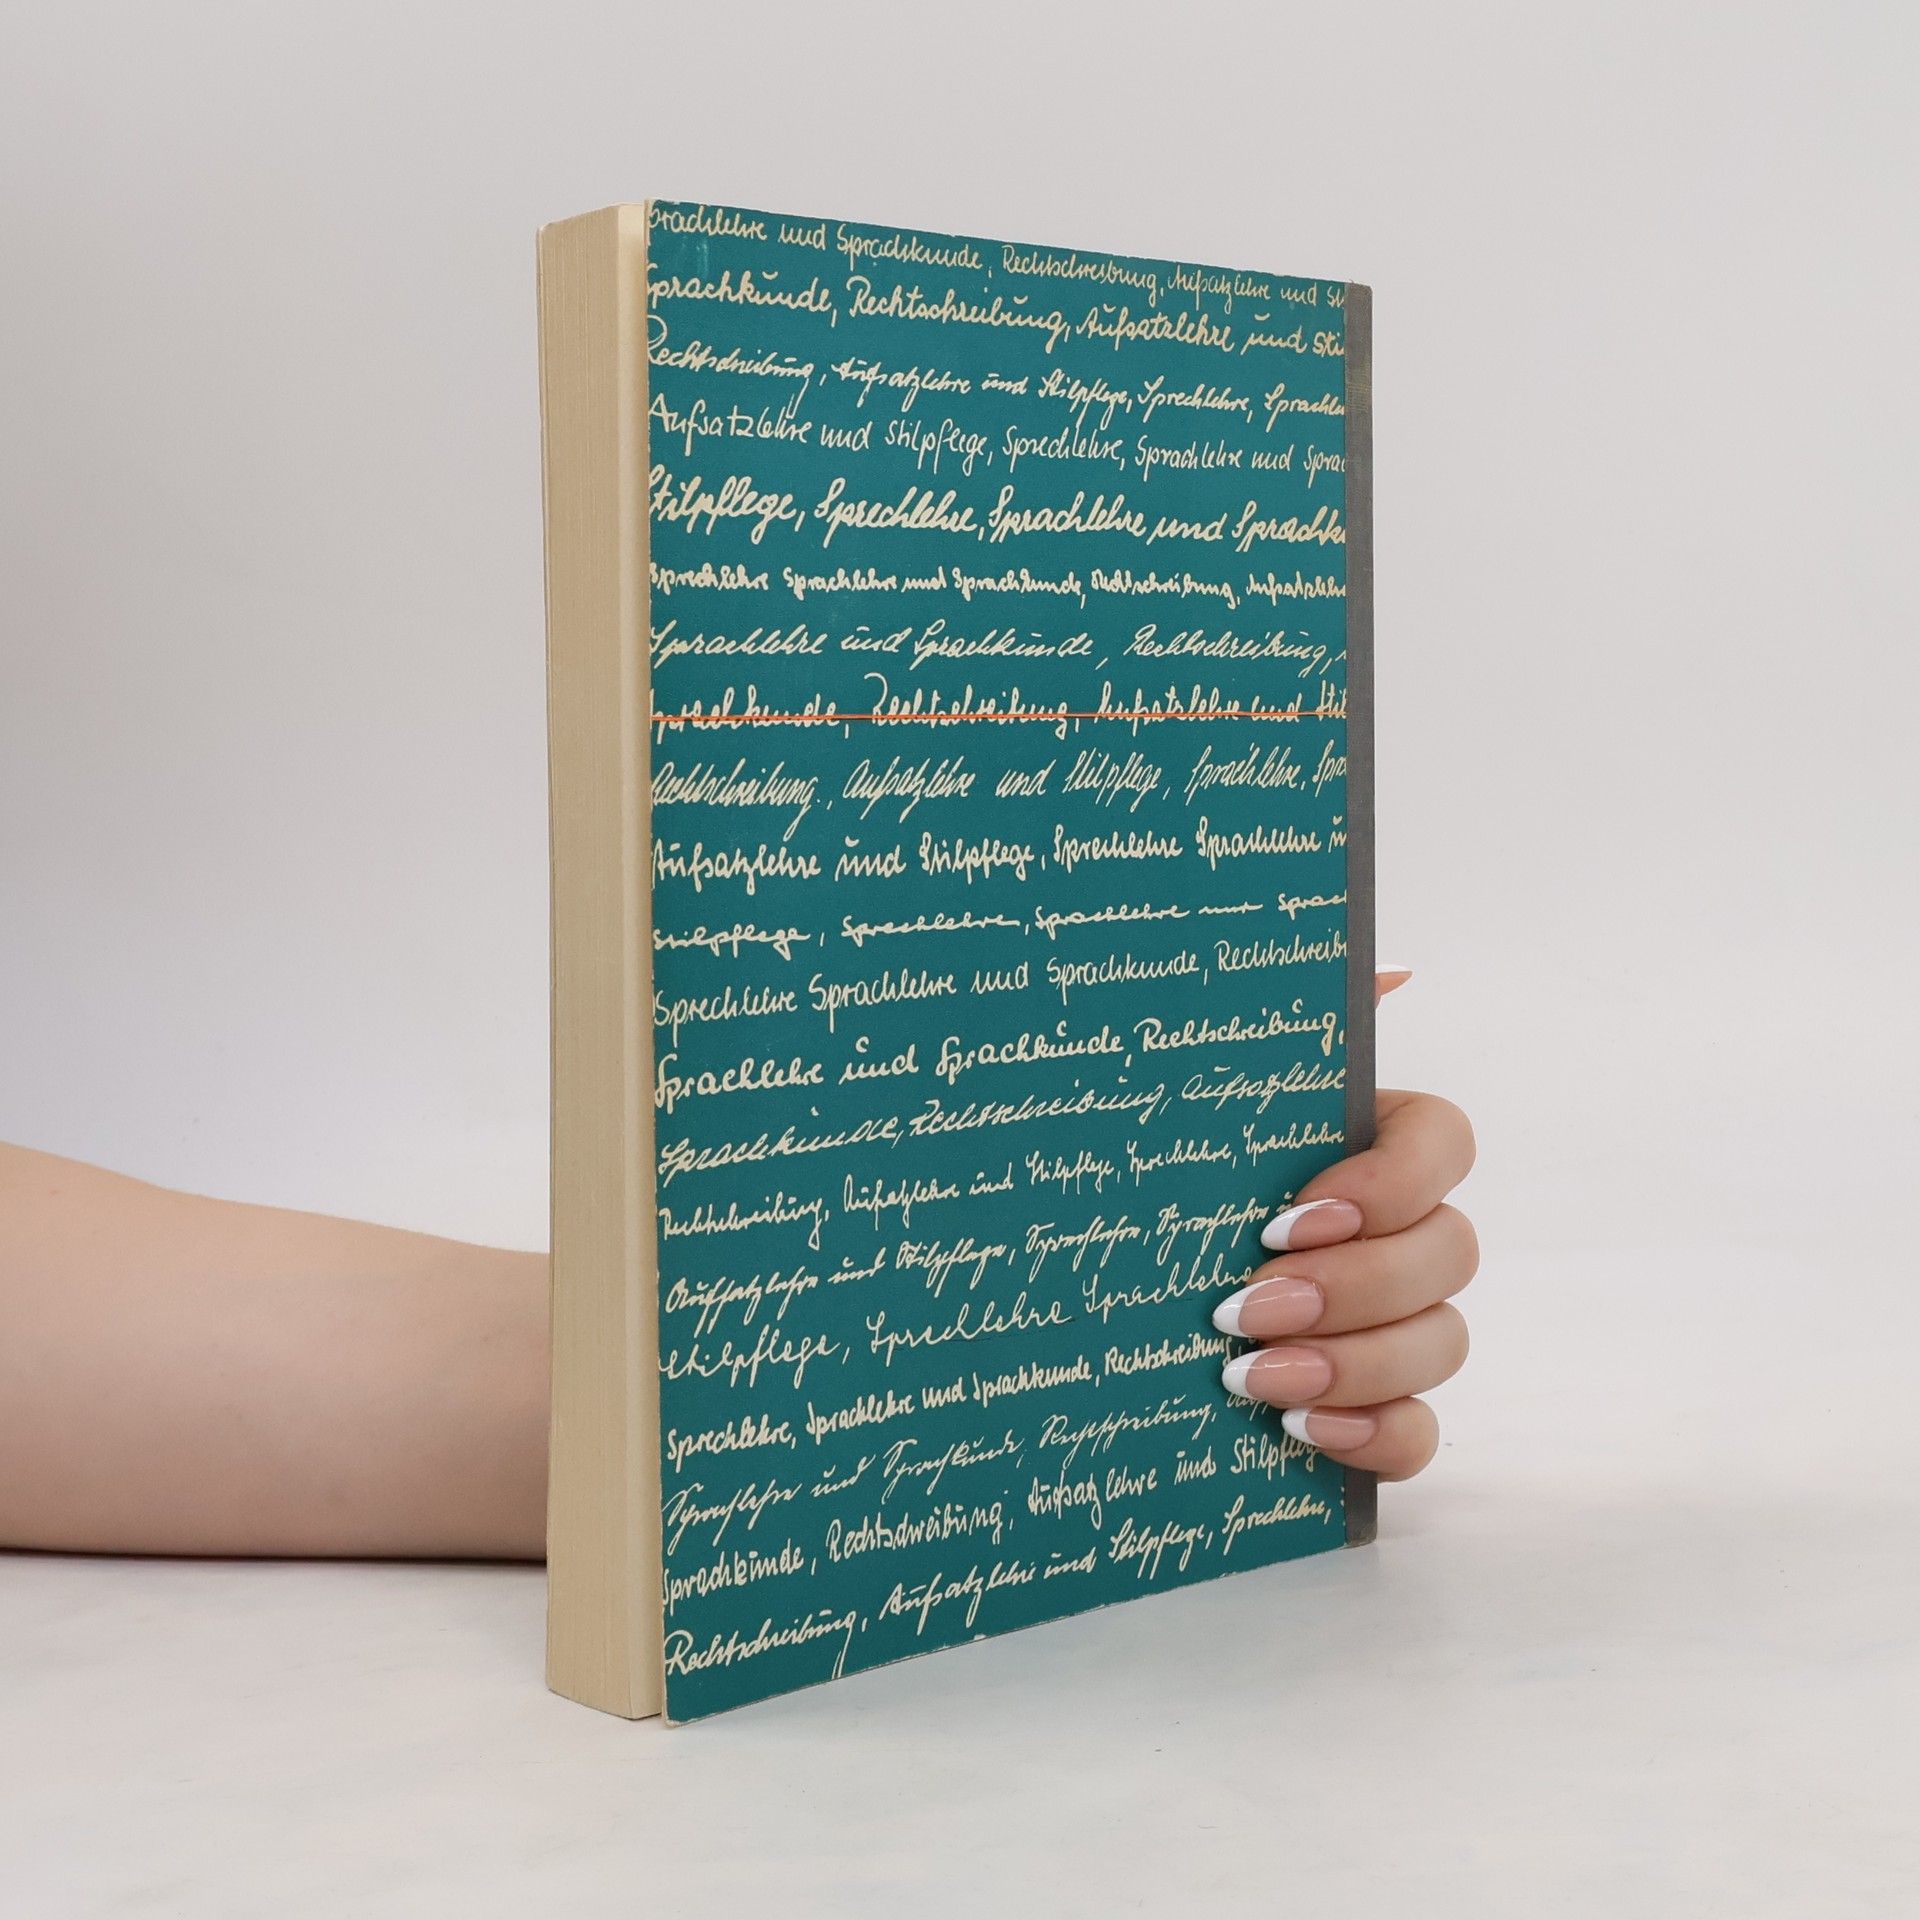 prachlehre und Sprachkunde, Rechtschreibung, Aufsatzlehre und Sti
Sprachkunde, Rechtschreibung, Aufsatzlehre und Sti
Rechtschreibung, Aufsatzlehre und Stilpflege, Sprechlehre, Sprachle
Aufsatzlehre und Stilpflege, Sprechlehre, Sprachlehre und Sprac
Stilpflege, Sprechlehre, Sprachlehre und Sprachku
Sprechlehre Sprachlehre und Sprachkunde, Rechtschreibung, Aufsatzlehre
Sprachlehre und Sprachkunde, Rechtschreibung,
Sprachkunde, Rechtschreibung, Aufsatzlehre und Stil
Rechtschreibung, Aufsatzlehre und Stilpflege, Sprachlehre, Spra
Aufsatzlehre und Stilpflege, Sprechlehre Sprachlehre u
Stilpflege, Sprechlehre, Sprachlehre und Sprach
Sprechlehre Sprachlehre und Sprachkunde, Rechtschreib
Sprachlehre und Sprachkunde, Rechtschreibung,
Sprachkunde, Rechtschreibung, Aufsatzlehre
Rechtschreibung, Aufsatzlehre und Stilpflege, Sprechlehre, Sprachlehre
Aufsatzlehre und Stilpflege, Sprechlehre, Sprachlehre u
Stilpflege, Sprechlehre Sprachlehre
Sprechlehre, Sprachlehre und Sprachkunde, Rechtschreibung
Sprachlehre und Sprachkunde, Rechtschreibung, Auf
Sprachkunde, Rechtschreibung, Aufsatzlehre und Stilpflege
Rechtschreibung, Aufsatzlehre und Stilpflege, Sprechlehre,